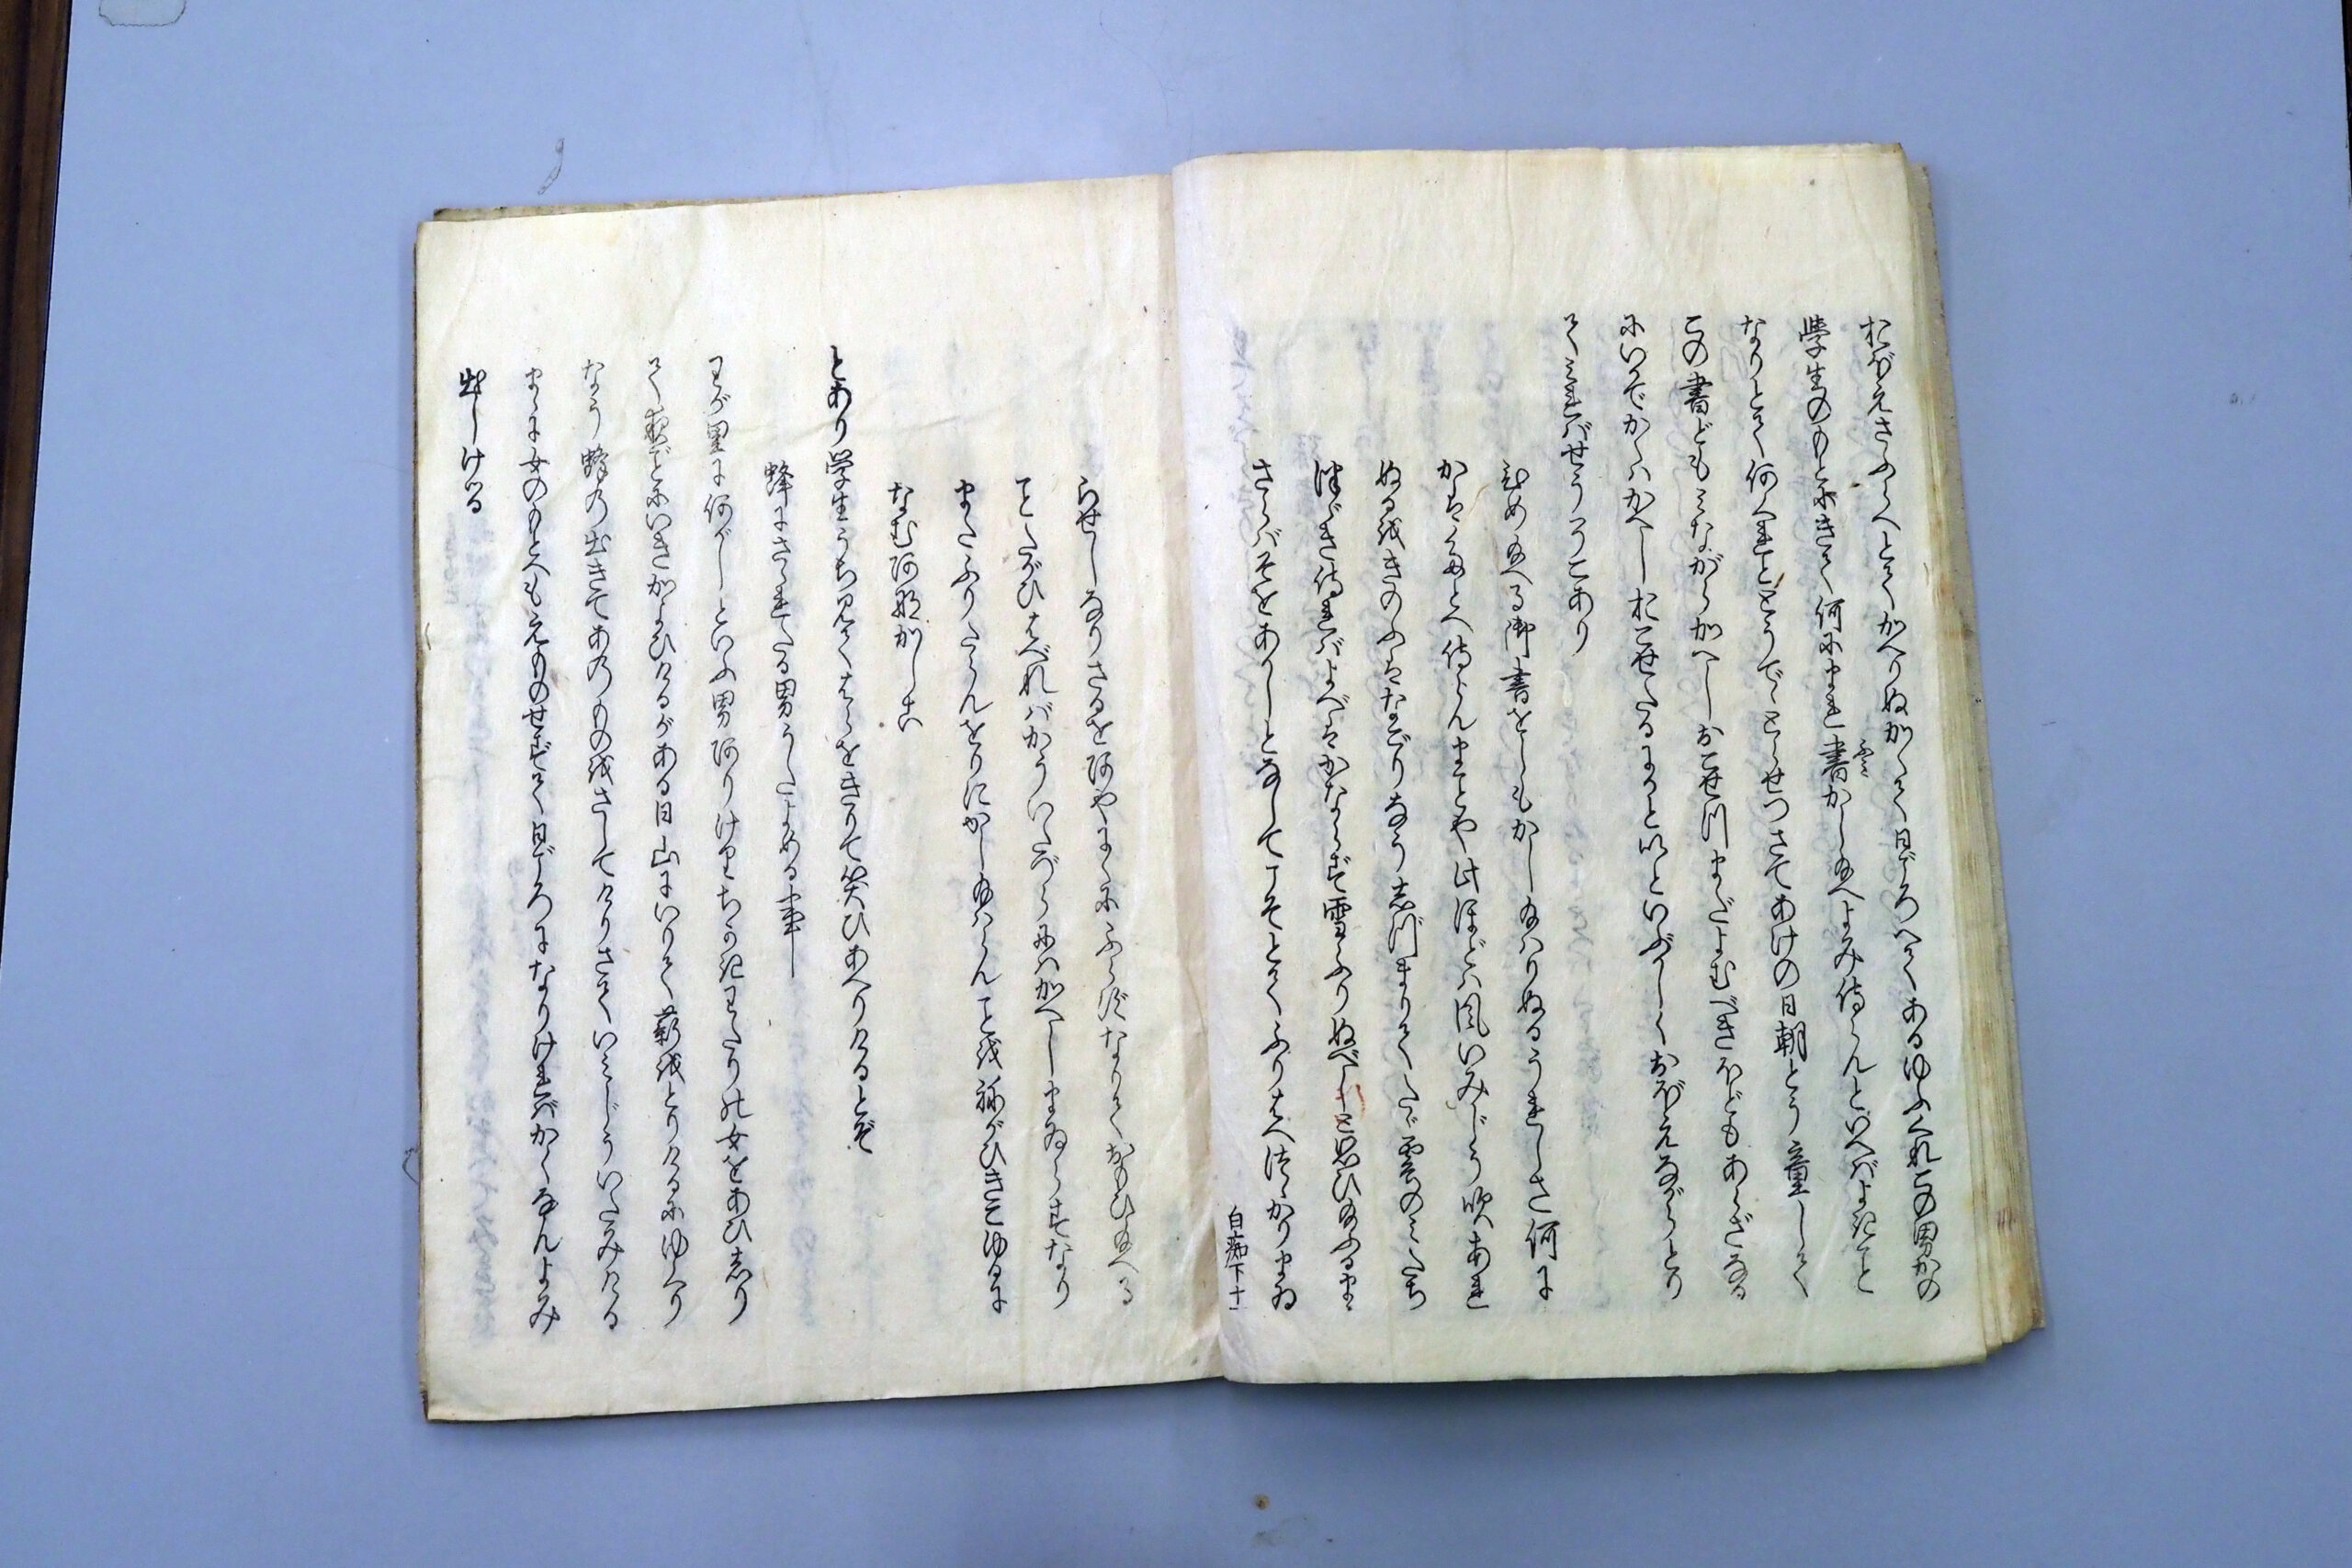 おぼえさふらへとてかへりぬかくて日ごろへてあるゆふべれこの男かの
學生のもとにきて何にまれ書かし給へよみ侍らんといへばよきこと
ふみ
なりとて何くれとどうでゝとらせつさてあけの日朝とう童して
この書どもみながらかへしおこせつまだよむべきほどもあらざなる
にいかでかくハかへしおこせたるにかといといぶかしくおぼえながらとり
てミればせうそこあり
ひめ給へる御書をしもかし給ハりぬるうれしさ何に
かはたとへ侍らんまことや此ほどハ風いみじう吹あれ
ぬるをきのふはなごりなうしづまりてたゞ雲のミたち
つゞき侍ればよべはかならず雪ふりぬべしと思ひ給ふるま
さらばそをあかしとなしてこそとてふりはへ はかりまゐ
白癡下十一
らせしなりさるをあやまくにふらずなりておもひ給へる
ことたがひはべればかういたづらにハかへしまゐらすなり
またふりたらんをりにかし給ハらんことをねがひきこゆるに
なむあなかしこ
とあり学生うち見てはらをきりて笑ひあへりけるとぞ
蜂にさゝれたる男うたよめる事
わが里に何がしといふ男ありけりちかきわたりの女をあひしり
て夜ごとにいきかよひけるがある日山にいりて薪をとりけるにゆくり
なう蜂の出きてあのものをさしてけりさていみじういたみける
まゝに女のもとへもえものせずて日ごろになりければかくなんよみ
出しける